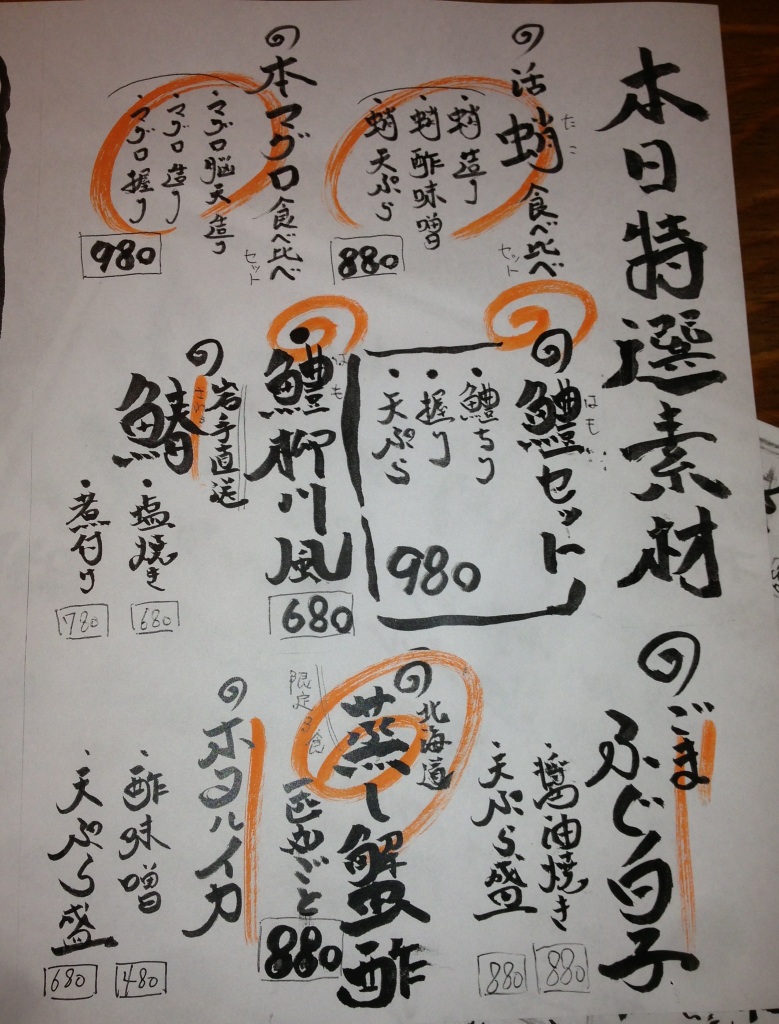 本日特選素材
活蛸食べ比べ
たこ
セット
・蛸造り
・蛸酢味噌
・蛸天ぷら
880
本マグロ食べ比べ
セット
・マグロ脳天造り
・マグロ造り
・マグロ握り
980
鱧セット
はも
・鱧ちり
・握り
・天ぷら
980
鱧柳川風
はも
680
岩手直送
鰆
さわら
・塩焼き
680
・煮付け
780
ごま
ふぐ白子
・醤油焼き
880
・天ぷら盛
880
北海道
蒸し蟹酢
一匹丸ごと
880
ホタルイカ
・酢味噌
480
・天ぷら盛
680